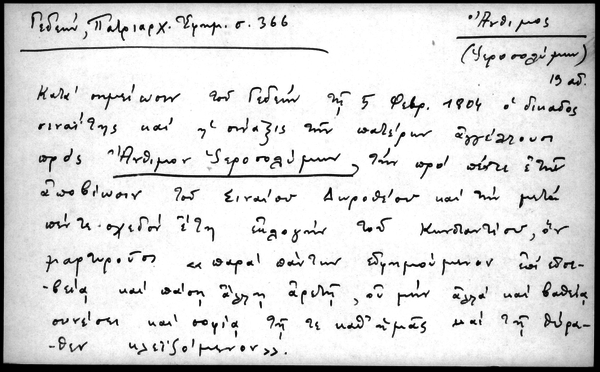 Γεδεών, Πατριαρχ. Ἐφημ. σ. 366
Ἄνθιμος
(Ἱεροσολύμων)
19 αἰ.
Κατὰ σημείωσιν τοῦ Γεδεὼν τῇ 5 Φεβρ. 1804 ὁ δικαῖος
σιναΐτης καὶ ἡ σύναξις τῶν πατέρων ἀγγέλλουσι
πρὸς Ἄνθιμον Ἱεροσολύμων, τὴν πρὸ πέντε ἐτῶν
ἀποβίωσιν τοῦ Σιναίου Δωροθέου καὶ τὴν μετὰ
πέντε σχεδὸν ἔτη ἐκλογὴν τοῦ Κωνσταντίου, ὃν
μαρτυροῦσι «παρὰ πάντων εὐφημούμενον ἐπὶ εὐσε-
-βείᾳ καὶ πάσῃ ἄλλῃ ἀρετῇ, οὐ μὴν ἀλλὰ καὶ βαθείᾳ
συνέσει καὶ σοφίᾳ τῇ τε καθ' ἡμᾶς καὶ τῇ θύρα-
-θεν κλεϊζόμενον».